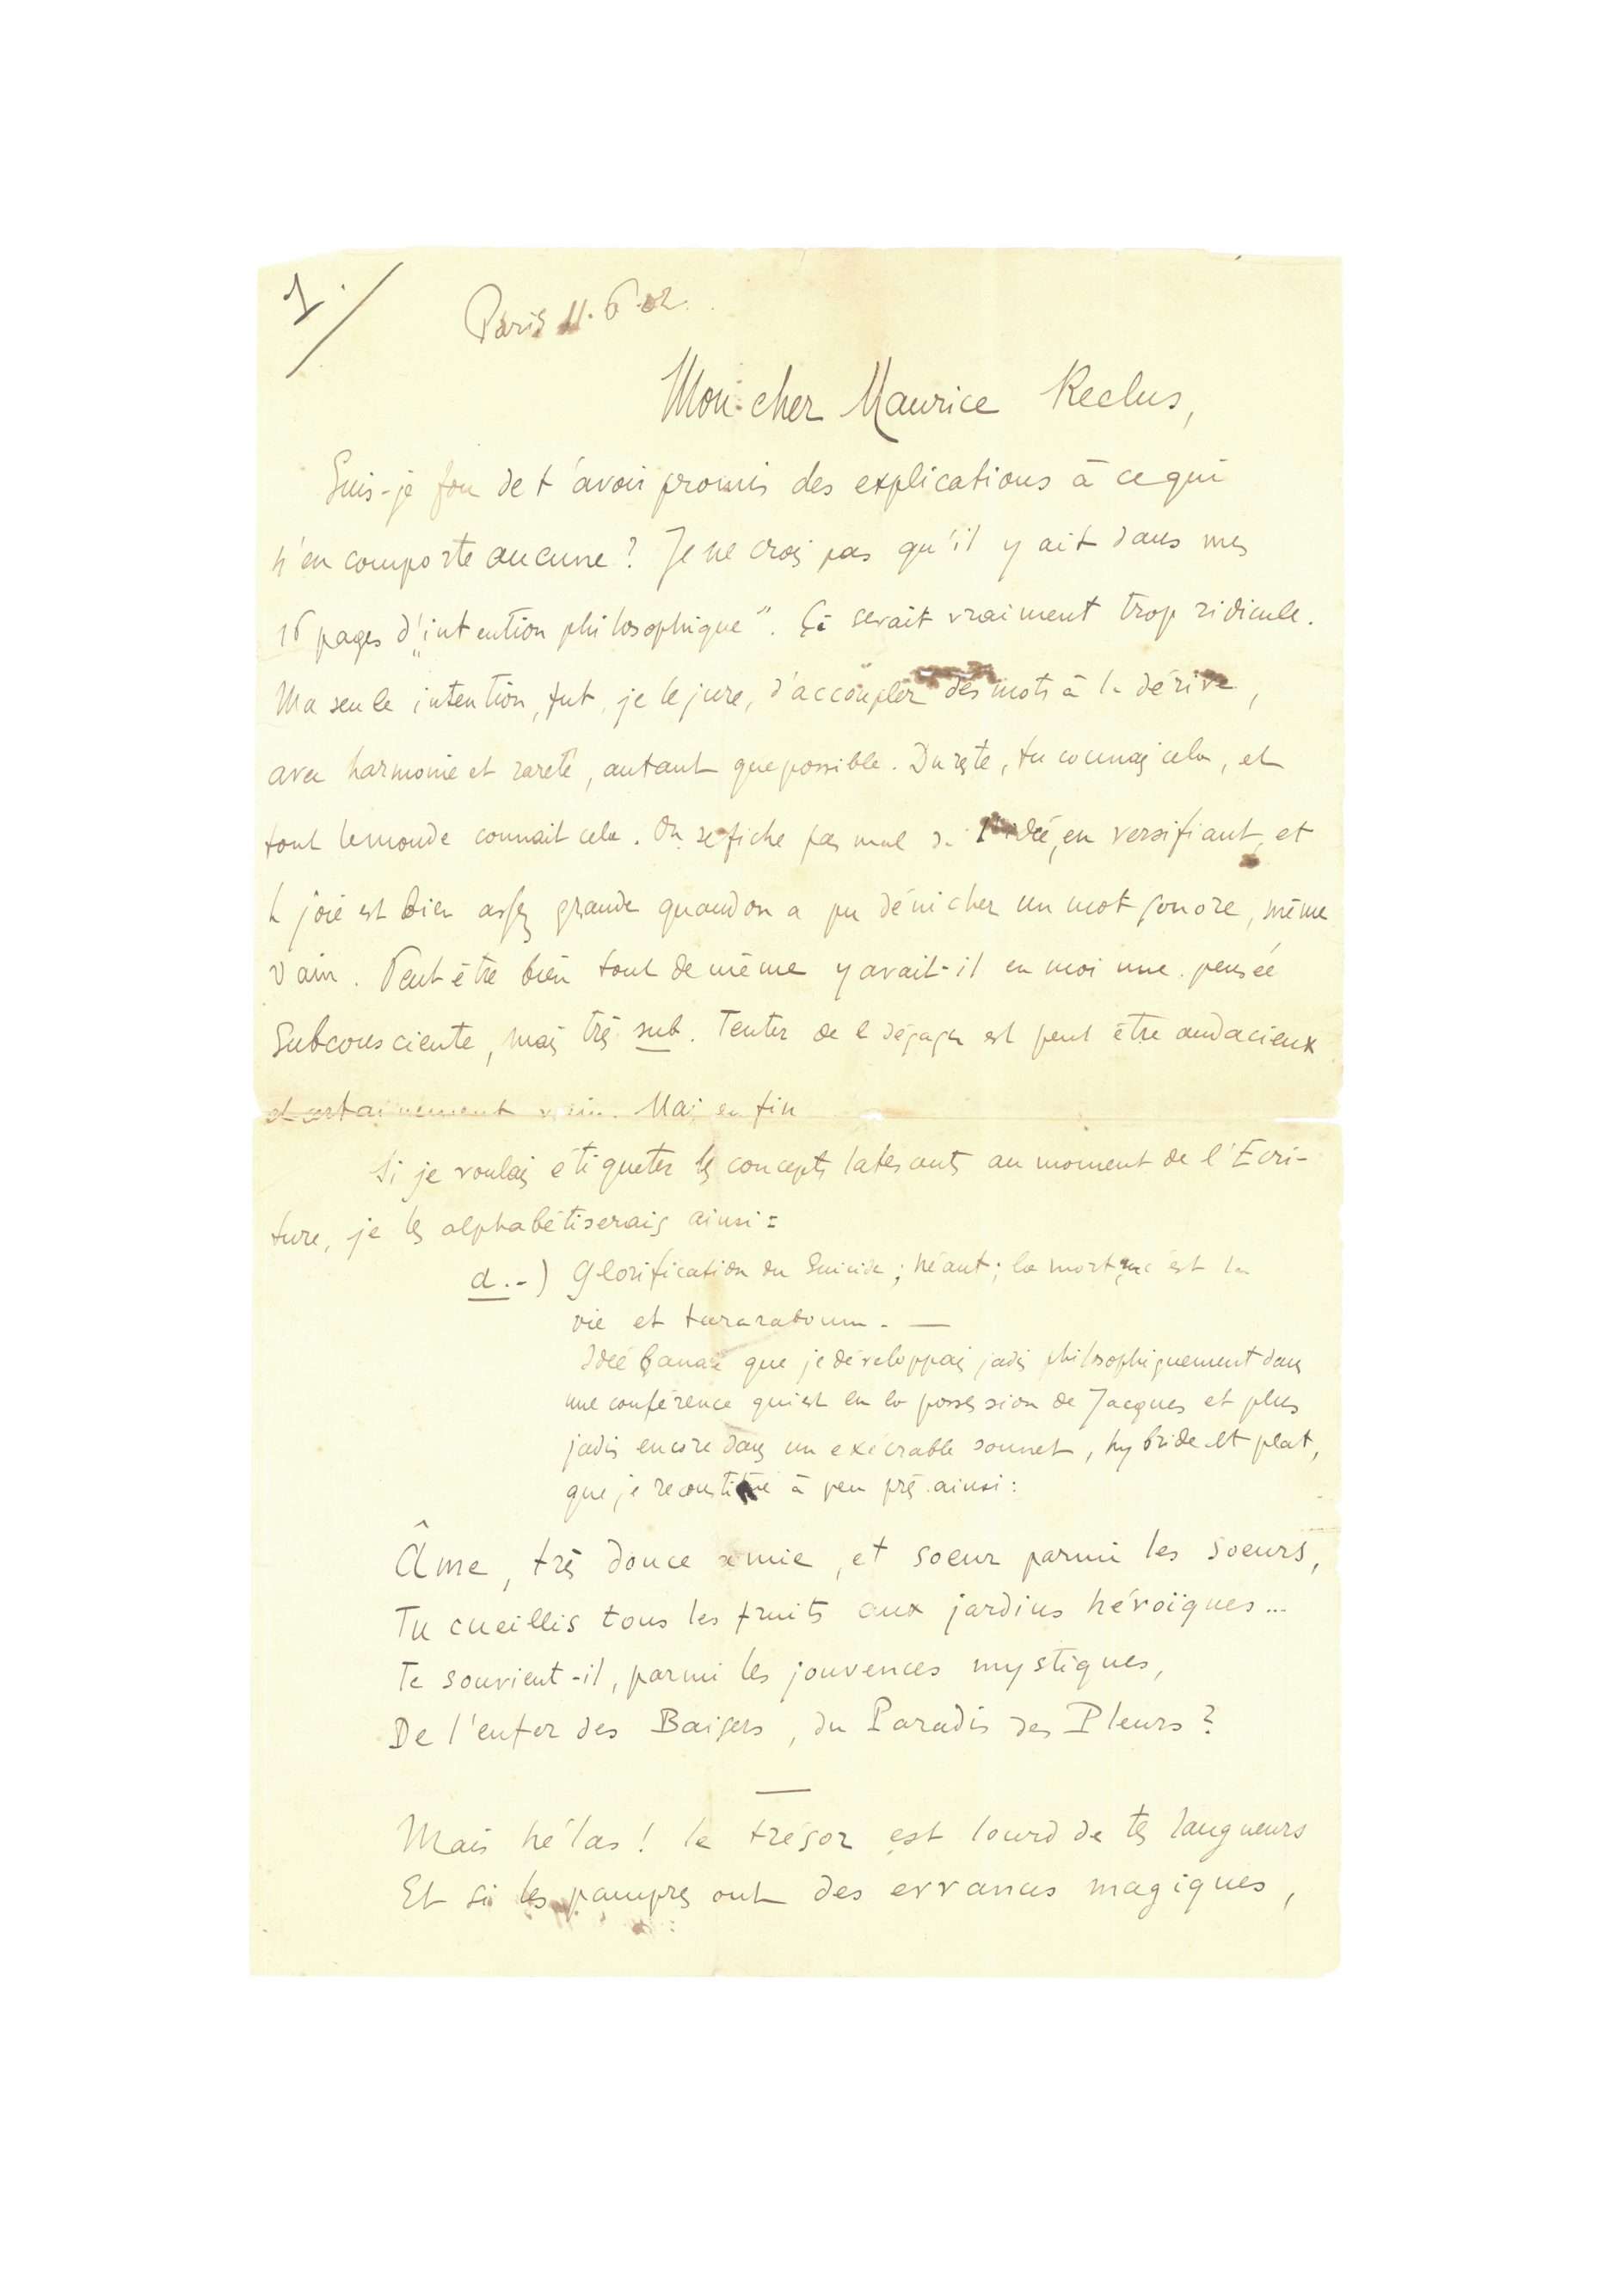 1./
Paris 11.6.02.
Mon cher Maurice Reclus,
Suis-je fou de t'avoir promis des explications à ce qui
n'en comporte aucune ? Je ne crois pas qu'il y ait dans mes
16 pages d'„intention philosophique". Ça serait vraiment trop ridicule.
Ma seule intention, fut, je le jure, d'accoupler des mots à la dérive,
avec harmonie et rareté, autant que possible. Du reste, tu connais cela, et
tout le monde connait cela. On se fiche pas mal de l'idée, en versifiant, et
la joie est bien assez grande quand on a pu dénicher un mot sonore, même
vain. Peut être bien tout de même y avait-il en moi une pensée
subconsciente, mais très sub. Tenter de la dégager est peut être audacieux
et certainement vain. Mais enfin
Si je voulais étiqueter les concepts latents au moment de l'Ecri-
ture, je les alphabétiserais ainsi :
a.-) Glorification du Suicide ; néant ; la mort c'est la
vie et tararaboum. —
Idée banale que je développais jadis philosophiquement dans
une conférence qui est en la possession de Jacques et plus
jadis encore dans un exécrable sonnet, hybride et plat,
que je reconstitue à peu près ainsi :
Âme, très douce amie, et soeur parmi les soeurs,
Tu cueillis tous les fruits aux jardins héroïques...
Te souvient-il, parmi les jouvences mystiques,
De l'enfer des Baisers, du Paradis des Pleurs ?
—
Mais hélas ! le trésor est lourd de tes langueurs
Et si les pampres ont des errances magiques,